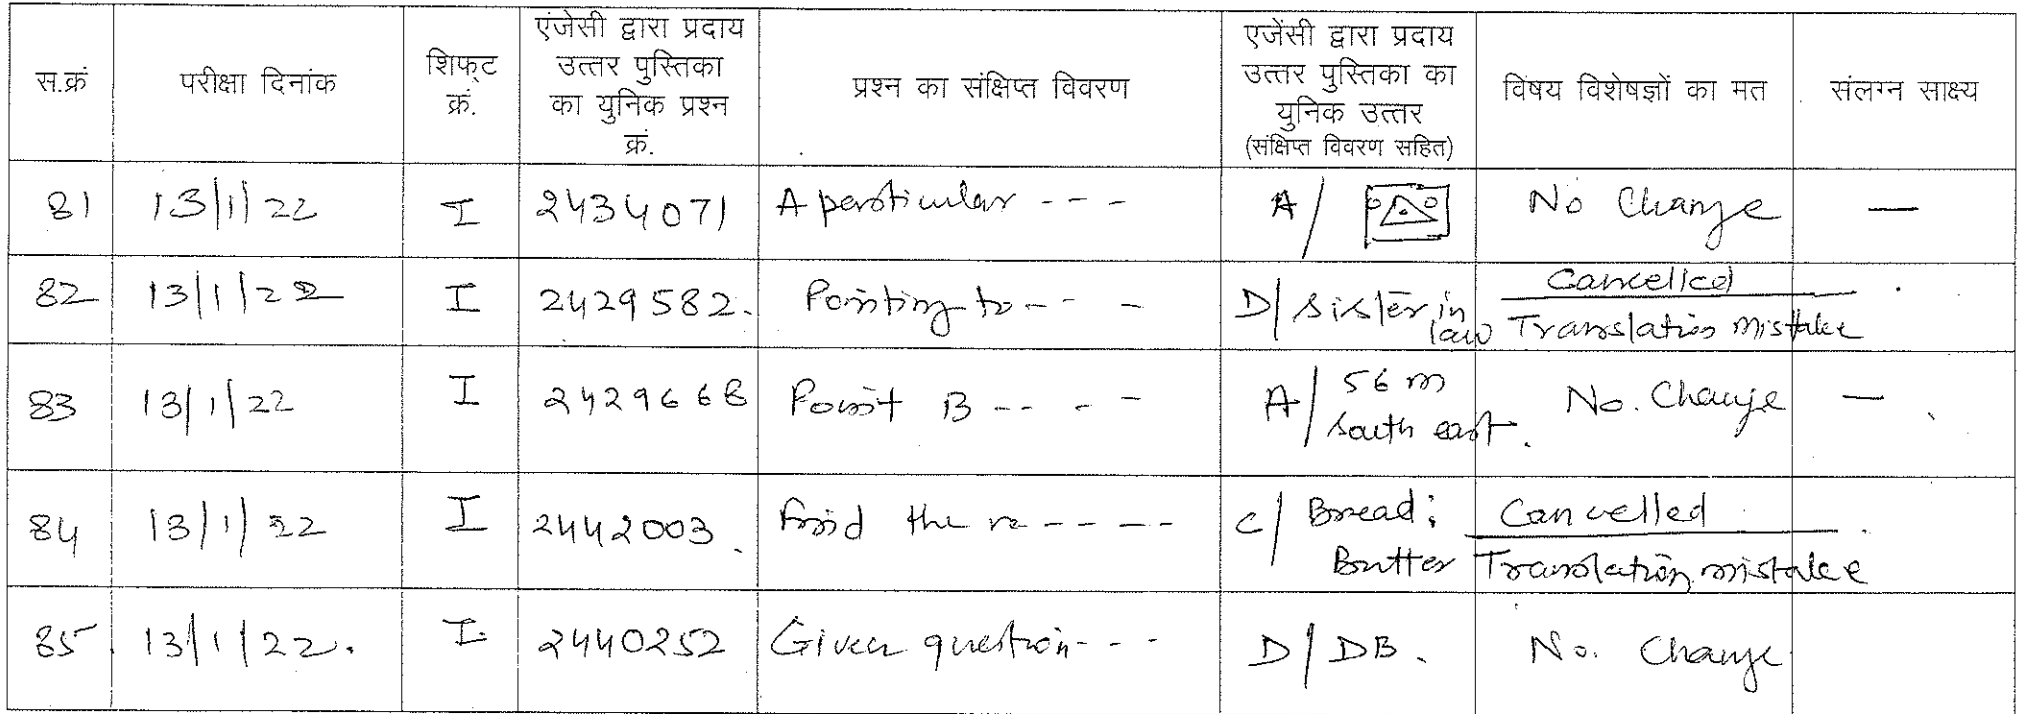 स.क्रं
परीक्षा दिनांक
शिफ्ट
क्रं.
एंजेसी द्वारा प्रदाय
उत्तर पुस्तिका
का युनिक प्रश्न
क्रं.
प्रश्न का संक्षिप्त विवरण
एजेंसी द्वारा प्रदाय
उत्तर पुस्तिका का
युनिक उत्तर
(संक्षिप्त विवरण सहित)
विषय विशेषज्ञों का मत
संलग्न साक्ष्य
81 13/1/22 I 2434071 A particular --- A/ No Change —
82 13/1/22 I 2429582. Pointing to --- D/ sister in
law
Cancelled
Translation mistake
83 13/1/22 I 2429668 Point B ---- A/ 56 m
south east.
No. Change —
84 13/1/22 I 2442003. Find the re ---- C/ Bread:
Butter
Cancelled
Translation mistake
85 13/1/22. I 2440252 Given question --- D/DB. No. Change